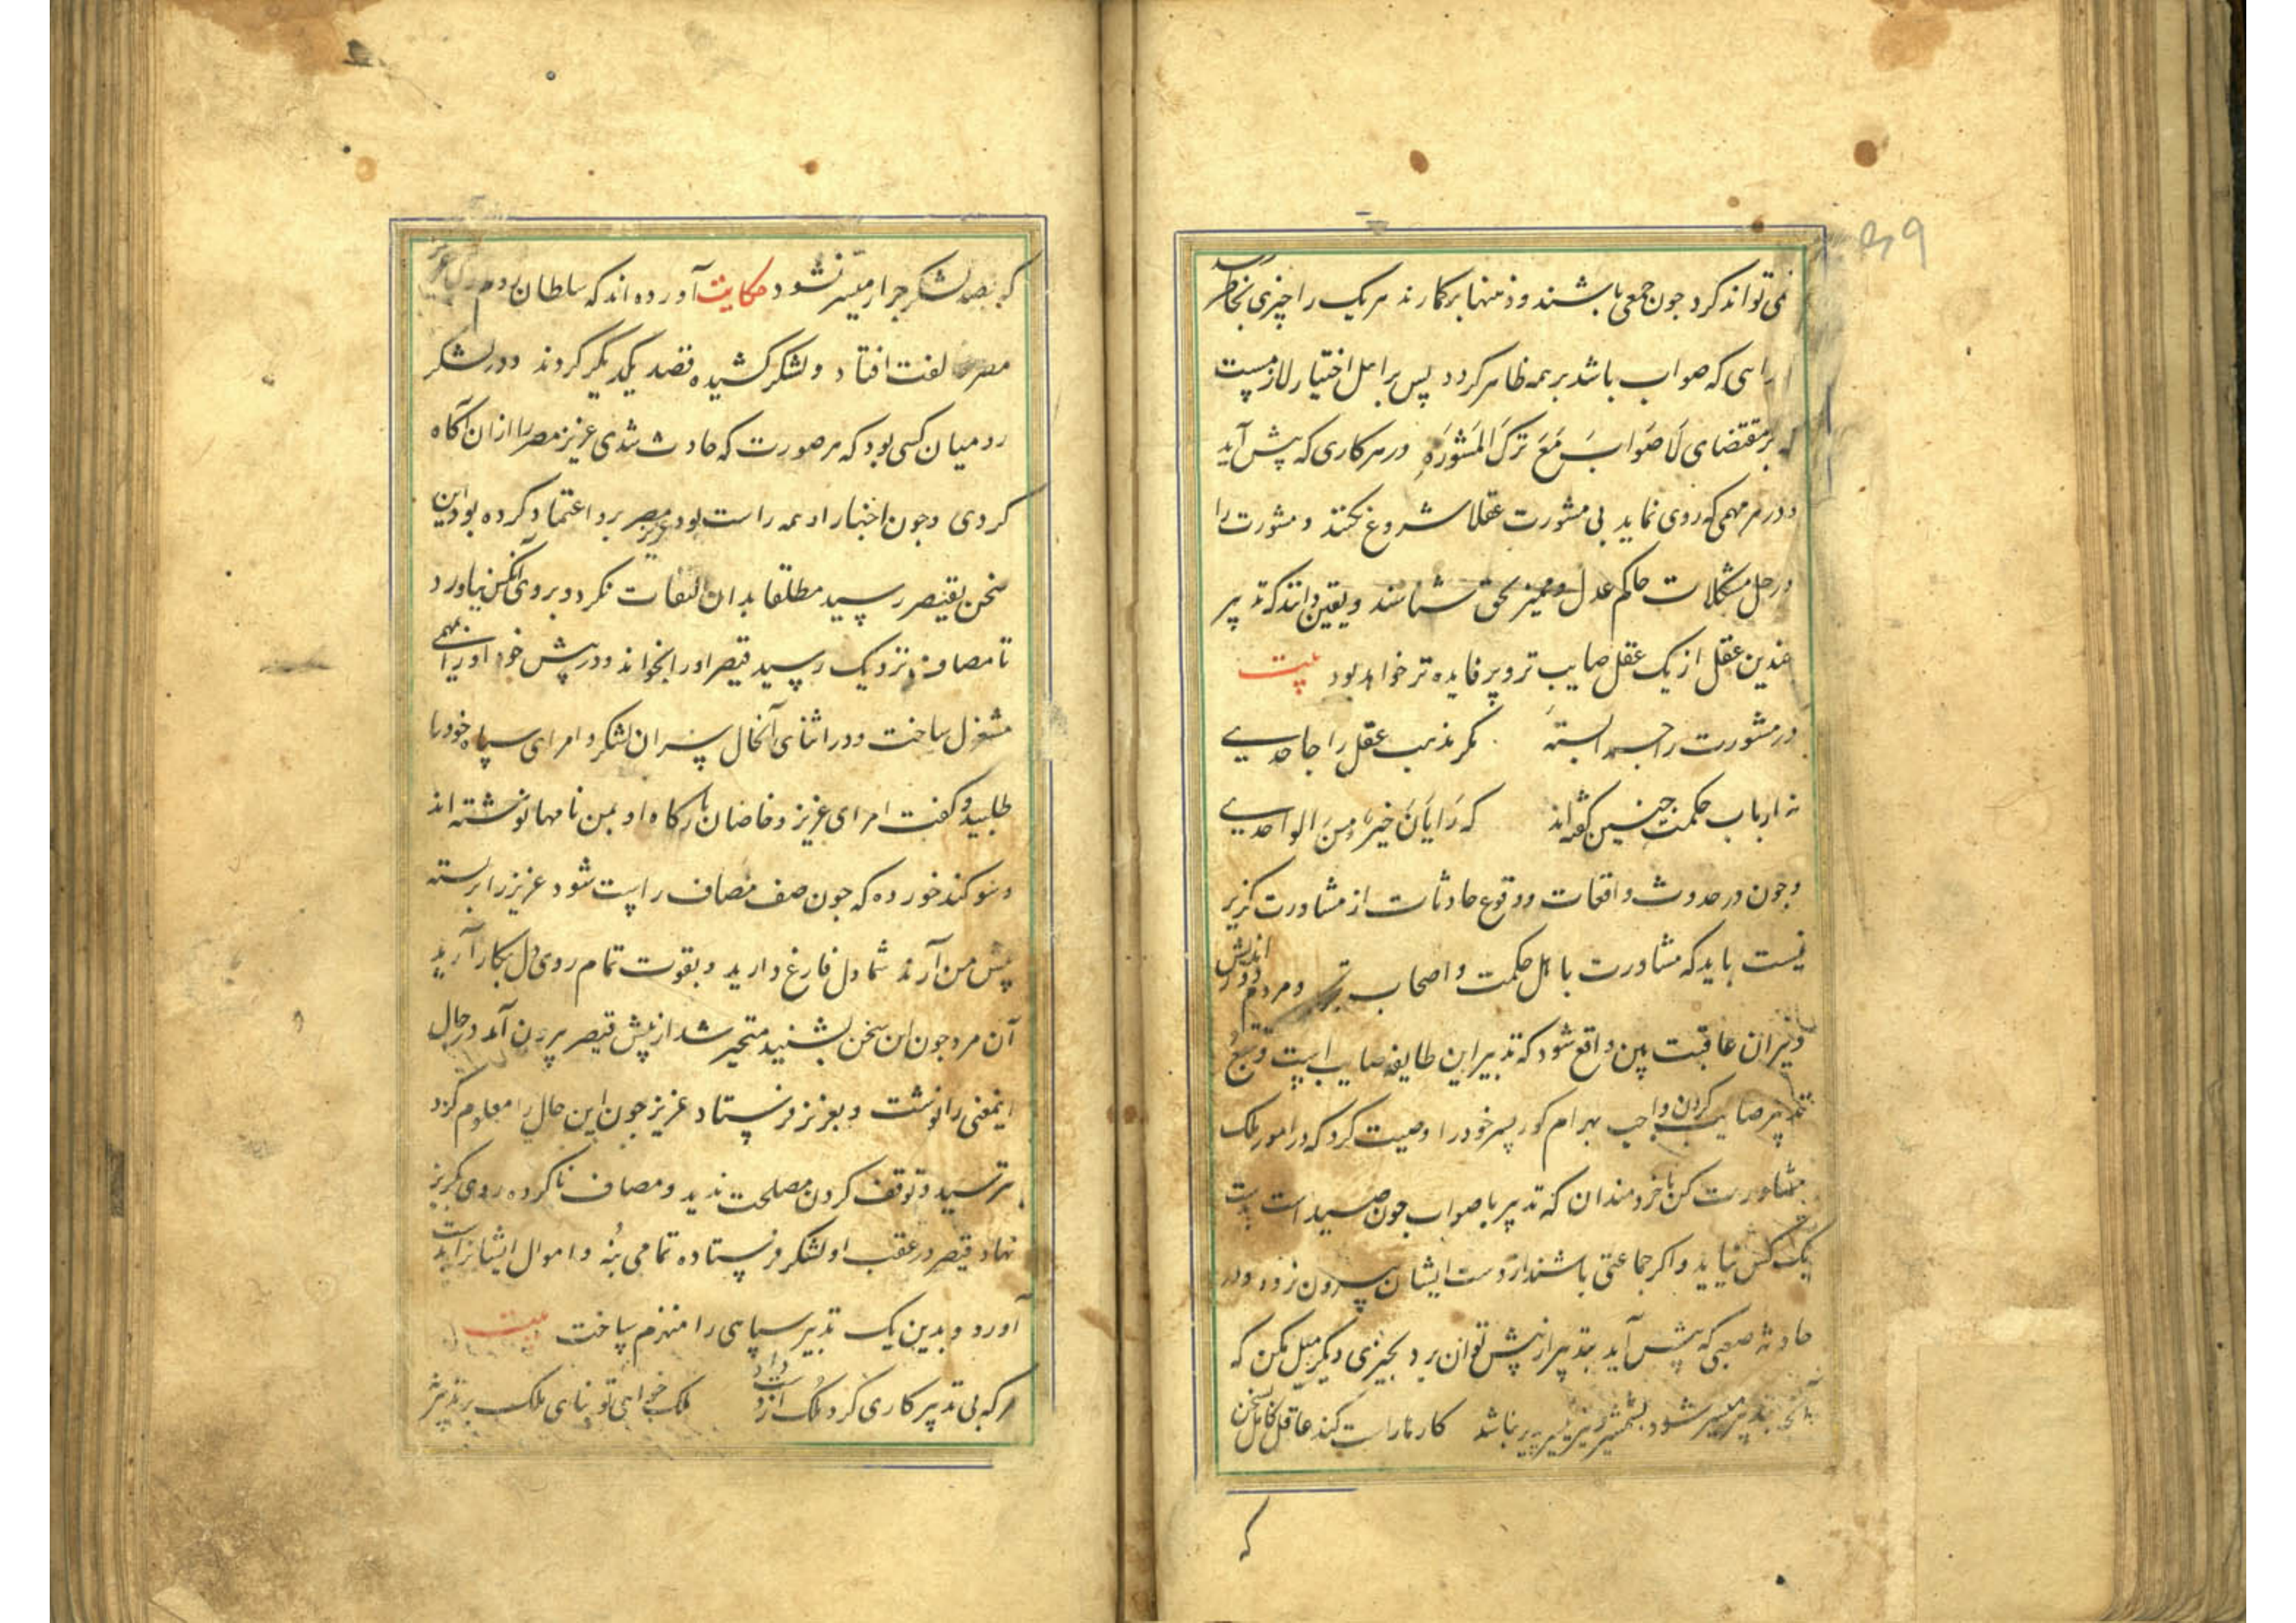 ۳۹
نمی تواند کرد جون جمعی باشند و ذهنها برکمارند هر یک را چیزی بخاطر رسد
رایی که صواب باشد بر همه ظاهر کردد پس بر اهل اختیار لازمست
که بر مقتضای لَا صَوابَ مَعَ تَرکَ المَشوَرَه در هر کاری که پیش آید
و در هر مهمی که روی نماید بی مشورت عقلا شروع نکنند و مشورت را
در حل مشکلات حاکم عدل و ممیز بحق شناسند و یقین دانند که تدبیر
جندین عقل از یک عقل صایب تر و پر فایده تر خواهد بود بیت
در مشورت را جسد البته مکر مذهب عقل را جاحدی
نه ارباب حکمت جنین کفته اند که رَایَانَ خَیرٌ مِنَ الواحدی
و جون در حدوث واقعات و وقوع حادثات از مشاورت کزیر
نیست باید که مشاورت با اهل حکمت و اصحاب و مردم دور اندیش
و پیران عاقبت بین واقع شود که تدبیر این طایفه صایب است و تتبع
تدبیر صایب کردن واجب بهرام کور پسر خود را وصیت کرد که در امور ملک
مشاورت کن با خردمندان که تدبیر با صواب جون صید است بدست
یک کس نیاید و اکر جماعتی باشند از دست ایشان بیرون نرود و در
حادثه صعبی که پیش آید بتدبیر از پیش توان برد بجیزی دیکر میل مکن که
آنجه بتدبیر میسر شود بشمشیر و تیر میسر نباشد کارها راست کند عاقل کامل بسخن
که
که بصد لشکر جرار میسر نشود حکایت آورده اند که سلطان روم را با عزیز
مصر مخالفت افتاد و لشکر کشیده قصد یکدیکر کردند و در لشکر
روم میان کسی بود که هر صورت که حادث شدی عزیز مصر را از ان آکاه
کردی و جون اخبار او همه راست بود عزیز مصر برو اعتماد کرده بود این
سخن بقیصر رسید مطلقا بدان التفات نکرد و بروی آنکس نیاورد
تا مصاف نزدیک رسید قیصر او را بخواند و در پیش خود او را بمهمی
مشغول ساخت و در اثنای آنحال سران لشکر و امرای سپاه خود را
طلبید و کفت امرای عزیز و خاصان بارکاه او بمن نامها نوشته اند
و سوکند خورده که جون صف مصاف راست شود عزیز را بر بسته
پیش من آرند شما دل فارغ دارید و بقوت تمام روی دل بکار آرید
آن مرد جون این سخن بشنید متحیر شد از پیش قیصر بیرون آمد در حال
اینمعنی را نوشت و بعزیز فرستاد عزیز جون این حال را معلوم کرد
بترسید و توقف کردن مصلحت ندید و مصاف ناکرده روی بکریز
نهاد قیصر در عقب او لشکر فرستاده تمامی بُنه و اموال ایشانرا بدست
آورد و بدین یک تدبیر سپاهی را منهزم ساخت بیت
هر که بی تدبیر کاری کرد ملک از دست داد ملک خواهی تو بنای ملک بر تدبیر نه